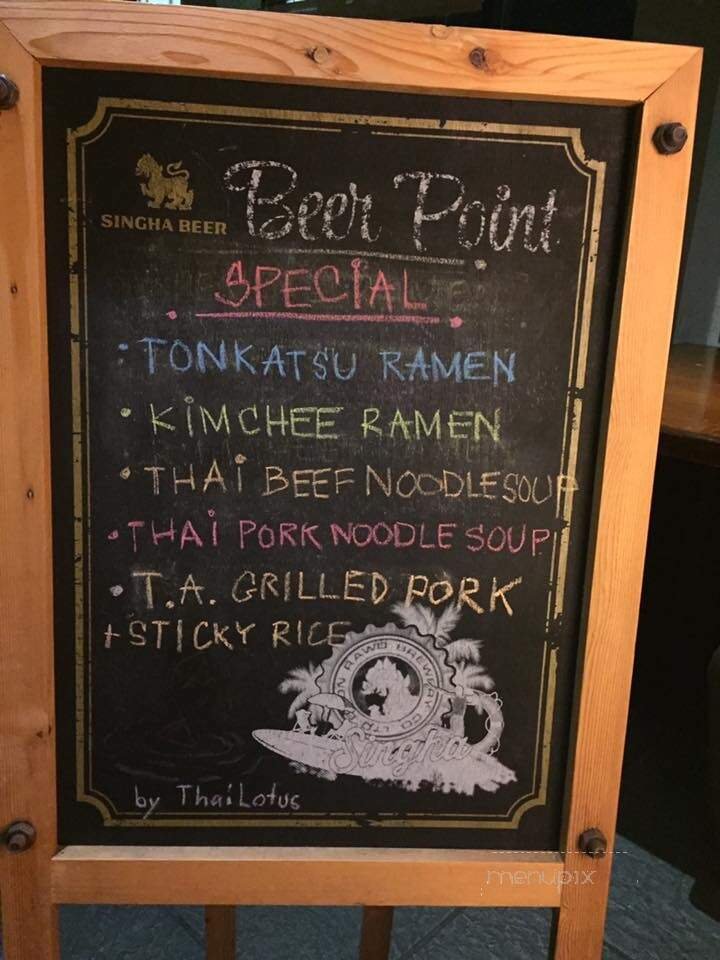 SINGHA BEER
Beer Point
SPECIAL
• TONKATSU RAMEN
• KIMCHEE RAMEN
• THAI BEEF NOODLE SOUP
• THAI PORK NOODLE SOUP
• T.A. GRILLED PORK
+ STICKY RICE
BOON RAWD BREWERY CO., LTD
Singha
by ThaiLotus
menupix